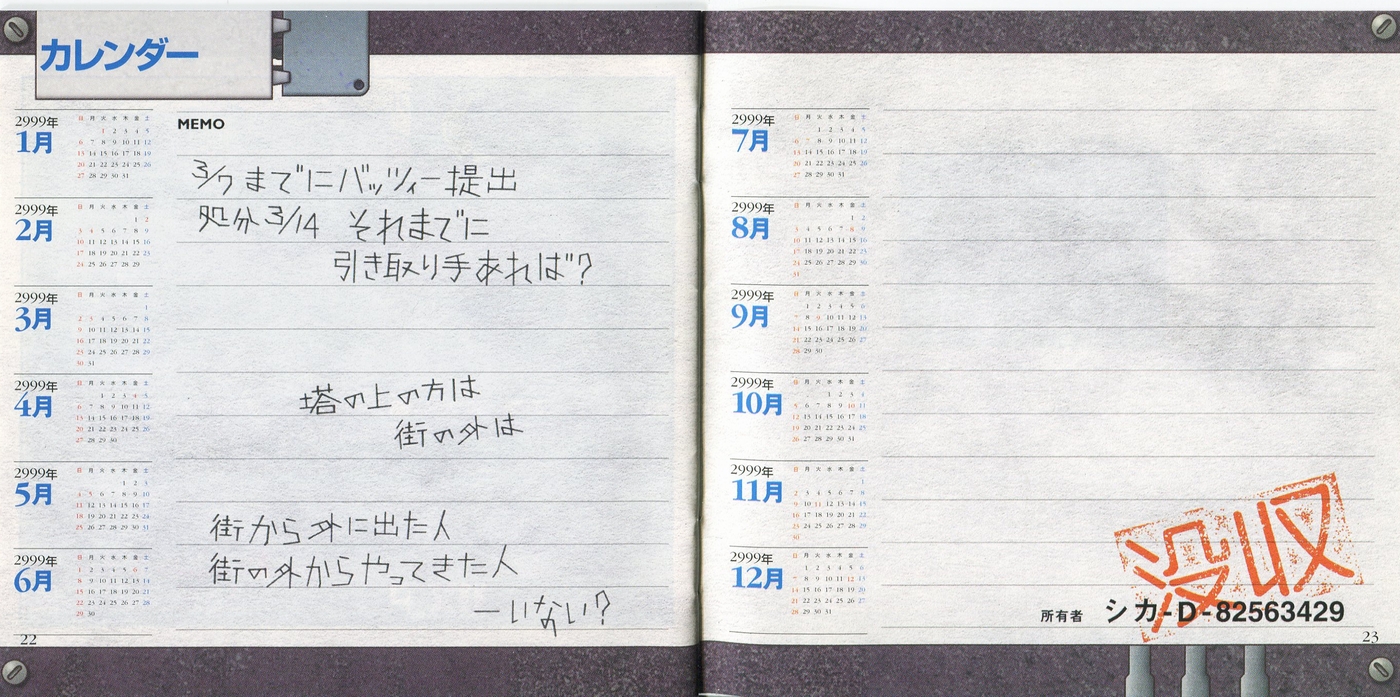 カレンダー
2999年
1月
日 月 火 水 木 金 土
1 2 3 4 5
6 7 8 9 10 11 12
13 14 15 16 17 18 19
20 21 22 23 24 25 26
27 28 29 30 31
2999年
2月
日 月 火 水 木 金 土
1 2
3 4 5 6 7 8 9
10 11 12 13 14 15 16
17 18 19 20 21 22 23
24 25 26 27 28 29
2999年
3月
日 月 火 水 木 金 土
1
2 3 4 5 6 7 8
9 10 11 12 13 14 15
16 17 18 19 20 21 22
23 24 25 26 27 28 29
30 31
2999年
4月
日 月 火 水 木 金 土
1 2 3 4 5
6 7 8 9 10 11 12
13 14 15 16 17 18 19
20 21 22 23 24 25 26
27 28 29 30
2999年
5月
日 月 火 水 木 金 土
1 2 3
4 5 6 7 8 9 10
11 12 13 14 15 16 17
18 19 20 21 22 23 24
25 26 27 28 29 30 31
2999年
6月
日 月 火 水 木 金 土
1 2 3 4 5 6 7
8 9 10 11 12 13 14
15 16 17 18 19 20 21
22 23 24 25 26 27 28
29 30
MEMO
3/7までにバッツィー提出
処分3/14 それまでに
引き取り手あれば?
塔の上の方は
街の外は
街から外に出た人
街の外からやってきた人
―いない?
22
2999年
7月
日 月 火 水 木 金 土
1 2 3 4 5
6 7 8 9 10 11 12
13 14 15 16 17 18 19
20 21 22 23 24 25 26
27 28 29 30 31
2999年
8月
日 月 火 水 木 金 土
1 2
3 4 5 6 7 8 9
10 11 12 13 14 15 16
17 18 19 20 21 22 23
24 25 26 27 28 29 30
31
2999年
9月
日 月 火 水 木 金 土
1 2 3 4 5 6
7 8 9 10 11 12 13
14 15 16 17 18 19 20
21 22 23 24 25 26 27
28 29 30
2999年
10月
日 月 火 水 木 金 土
1 2 3 4
5 6 7 8 9 10 11
12 13 14 15 16 17 18
19 20 21 22 23 24 25
26 27 28 29 30 31
2999年
11月
日 月 火 水 木 金 土
1
2 3 4 5 6 7 8
9 10 11 12 13 14 15
16 17 18 19 20 21 22
23 24 25 26 27 28 29
30
2999年
12月
日 月 火 水 木 金 土
1 2 3 4 5 6
7 8 9 10 11 12 13
14 15 16 17 18 19 20
21 22 23 24 25 26 27
28 29 30 31
没収
所有者 シカ-D-82563429
23